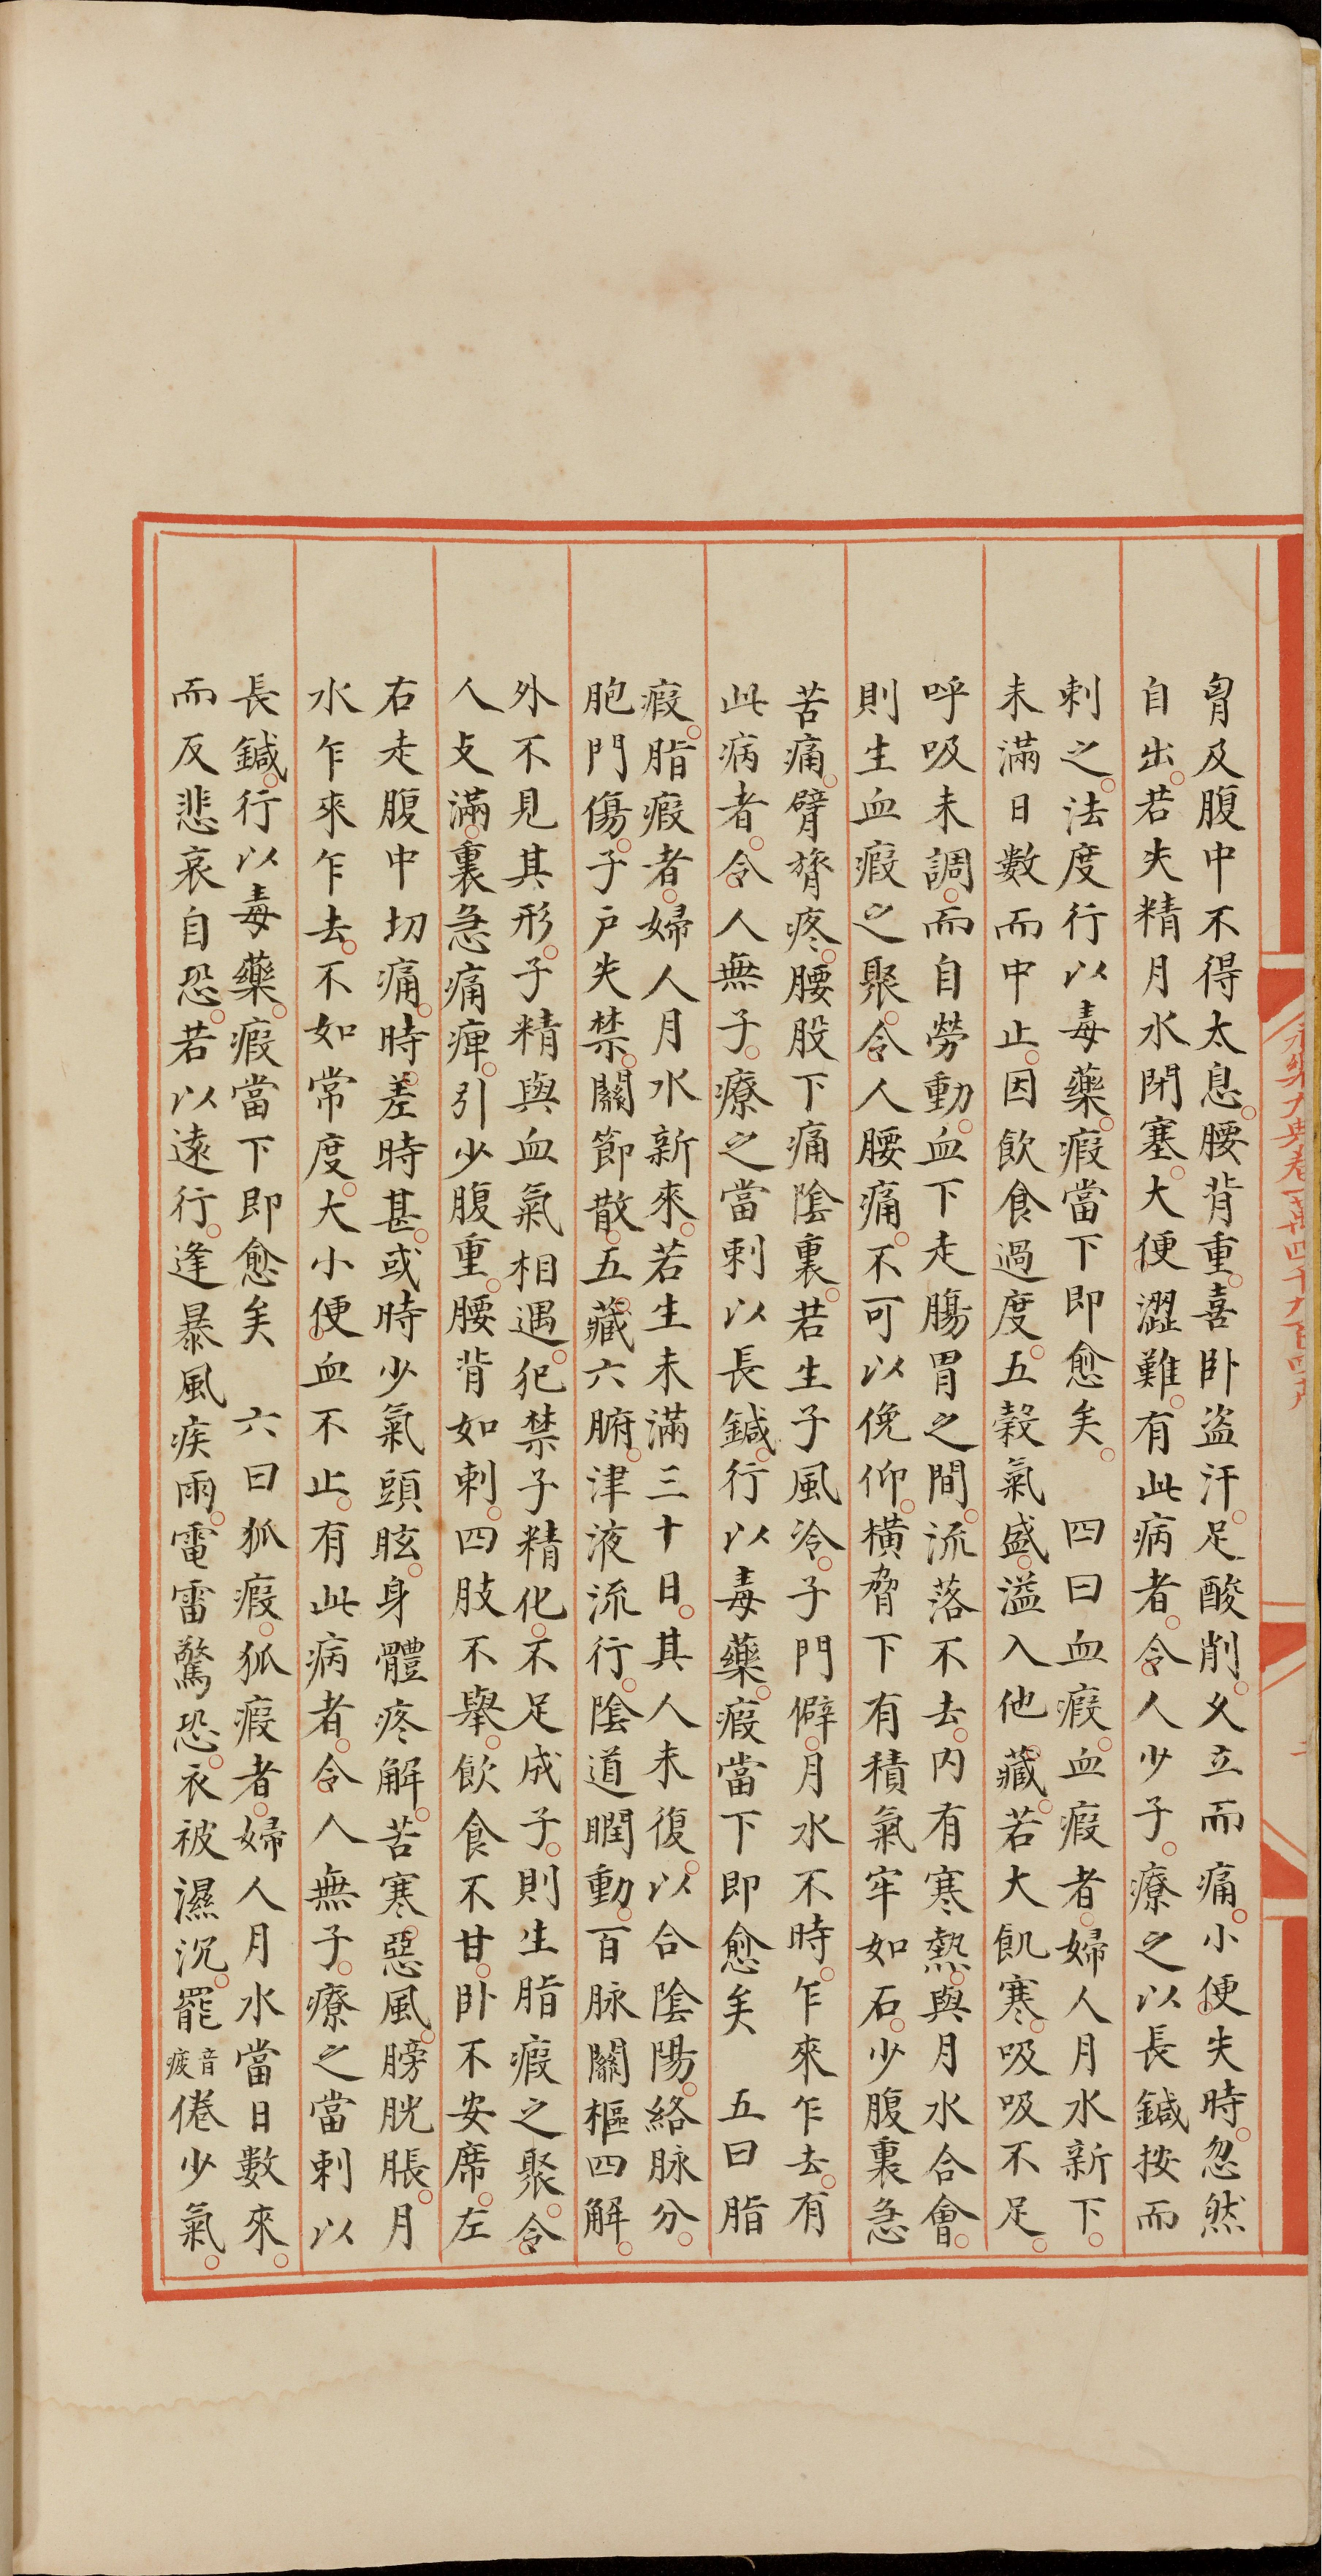 永樂大典卷一萬四千九百四十九
胷及腹中不得太息。腰背重。喜卧盗汗。足酸削。久立而痛。小便失時。忽然
自出。若失精月水閉塞。大便澀難。有此病者。令人少子。療之以長鍼按而
刺之。法度行以毒藥。瘕當下即愈矣。 四曰血瘕。血瘕者。婦人月水新下。
未滿日數而中止。因飲食過度。五穀氣盛。溢入他藏。若大飢寒。吸吸不足。
呼吸未調。而自勞動。血下走腸胃之間。流落不去。内有寒熱。與月水合會。
則生血瘕之聚。令人腰痛。不可以俛仰。橫脅下有積氣牢如石。少腹裏急
苦痛。臂膂疼。腰股下痛陰裏。若生子風冷。子門僻。月水不時。乍來乍去。有
此病者。令人無子。療之當刺以長鍼。行以毒藥。瘕當下即愈矣 五曰脂
瘕。脂瘕者。婦人月水新來。若生未滿三十日。其人未復。以合陰陽。絡脉分。
胞門傷。子户失禁。關節散。五藏六腑。津液流行。陰道瞤動。百脉關樞四解。
外不見其形。子精與血氣相遇。犯禁子精化。不足成子。則生脂瘕之聚。令
人支滿。裏急痛痺。引少腹重。腰背如刺。四肢不舉。飲食不甘。卧不安席。左
右走腹中切痛。時差時甚。或時少氣頭眩。身體疼解。苦寒惡風。膀胱脹。月
水乍來乍去。不如常度。大小便血不止。有此病者。令人無子。療之當刺以
長鍼。行以毒藥。瘕當下即愈矣 六曰狐瘕。狐瘕者。婦人月水當日數來。
而反悲哀自恐。若以遠行。逢暴風疾雨。電雷驚恐。衣被濕沉。罷音疲倦少氣。